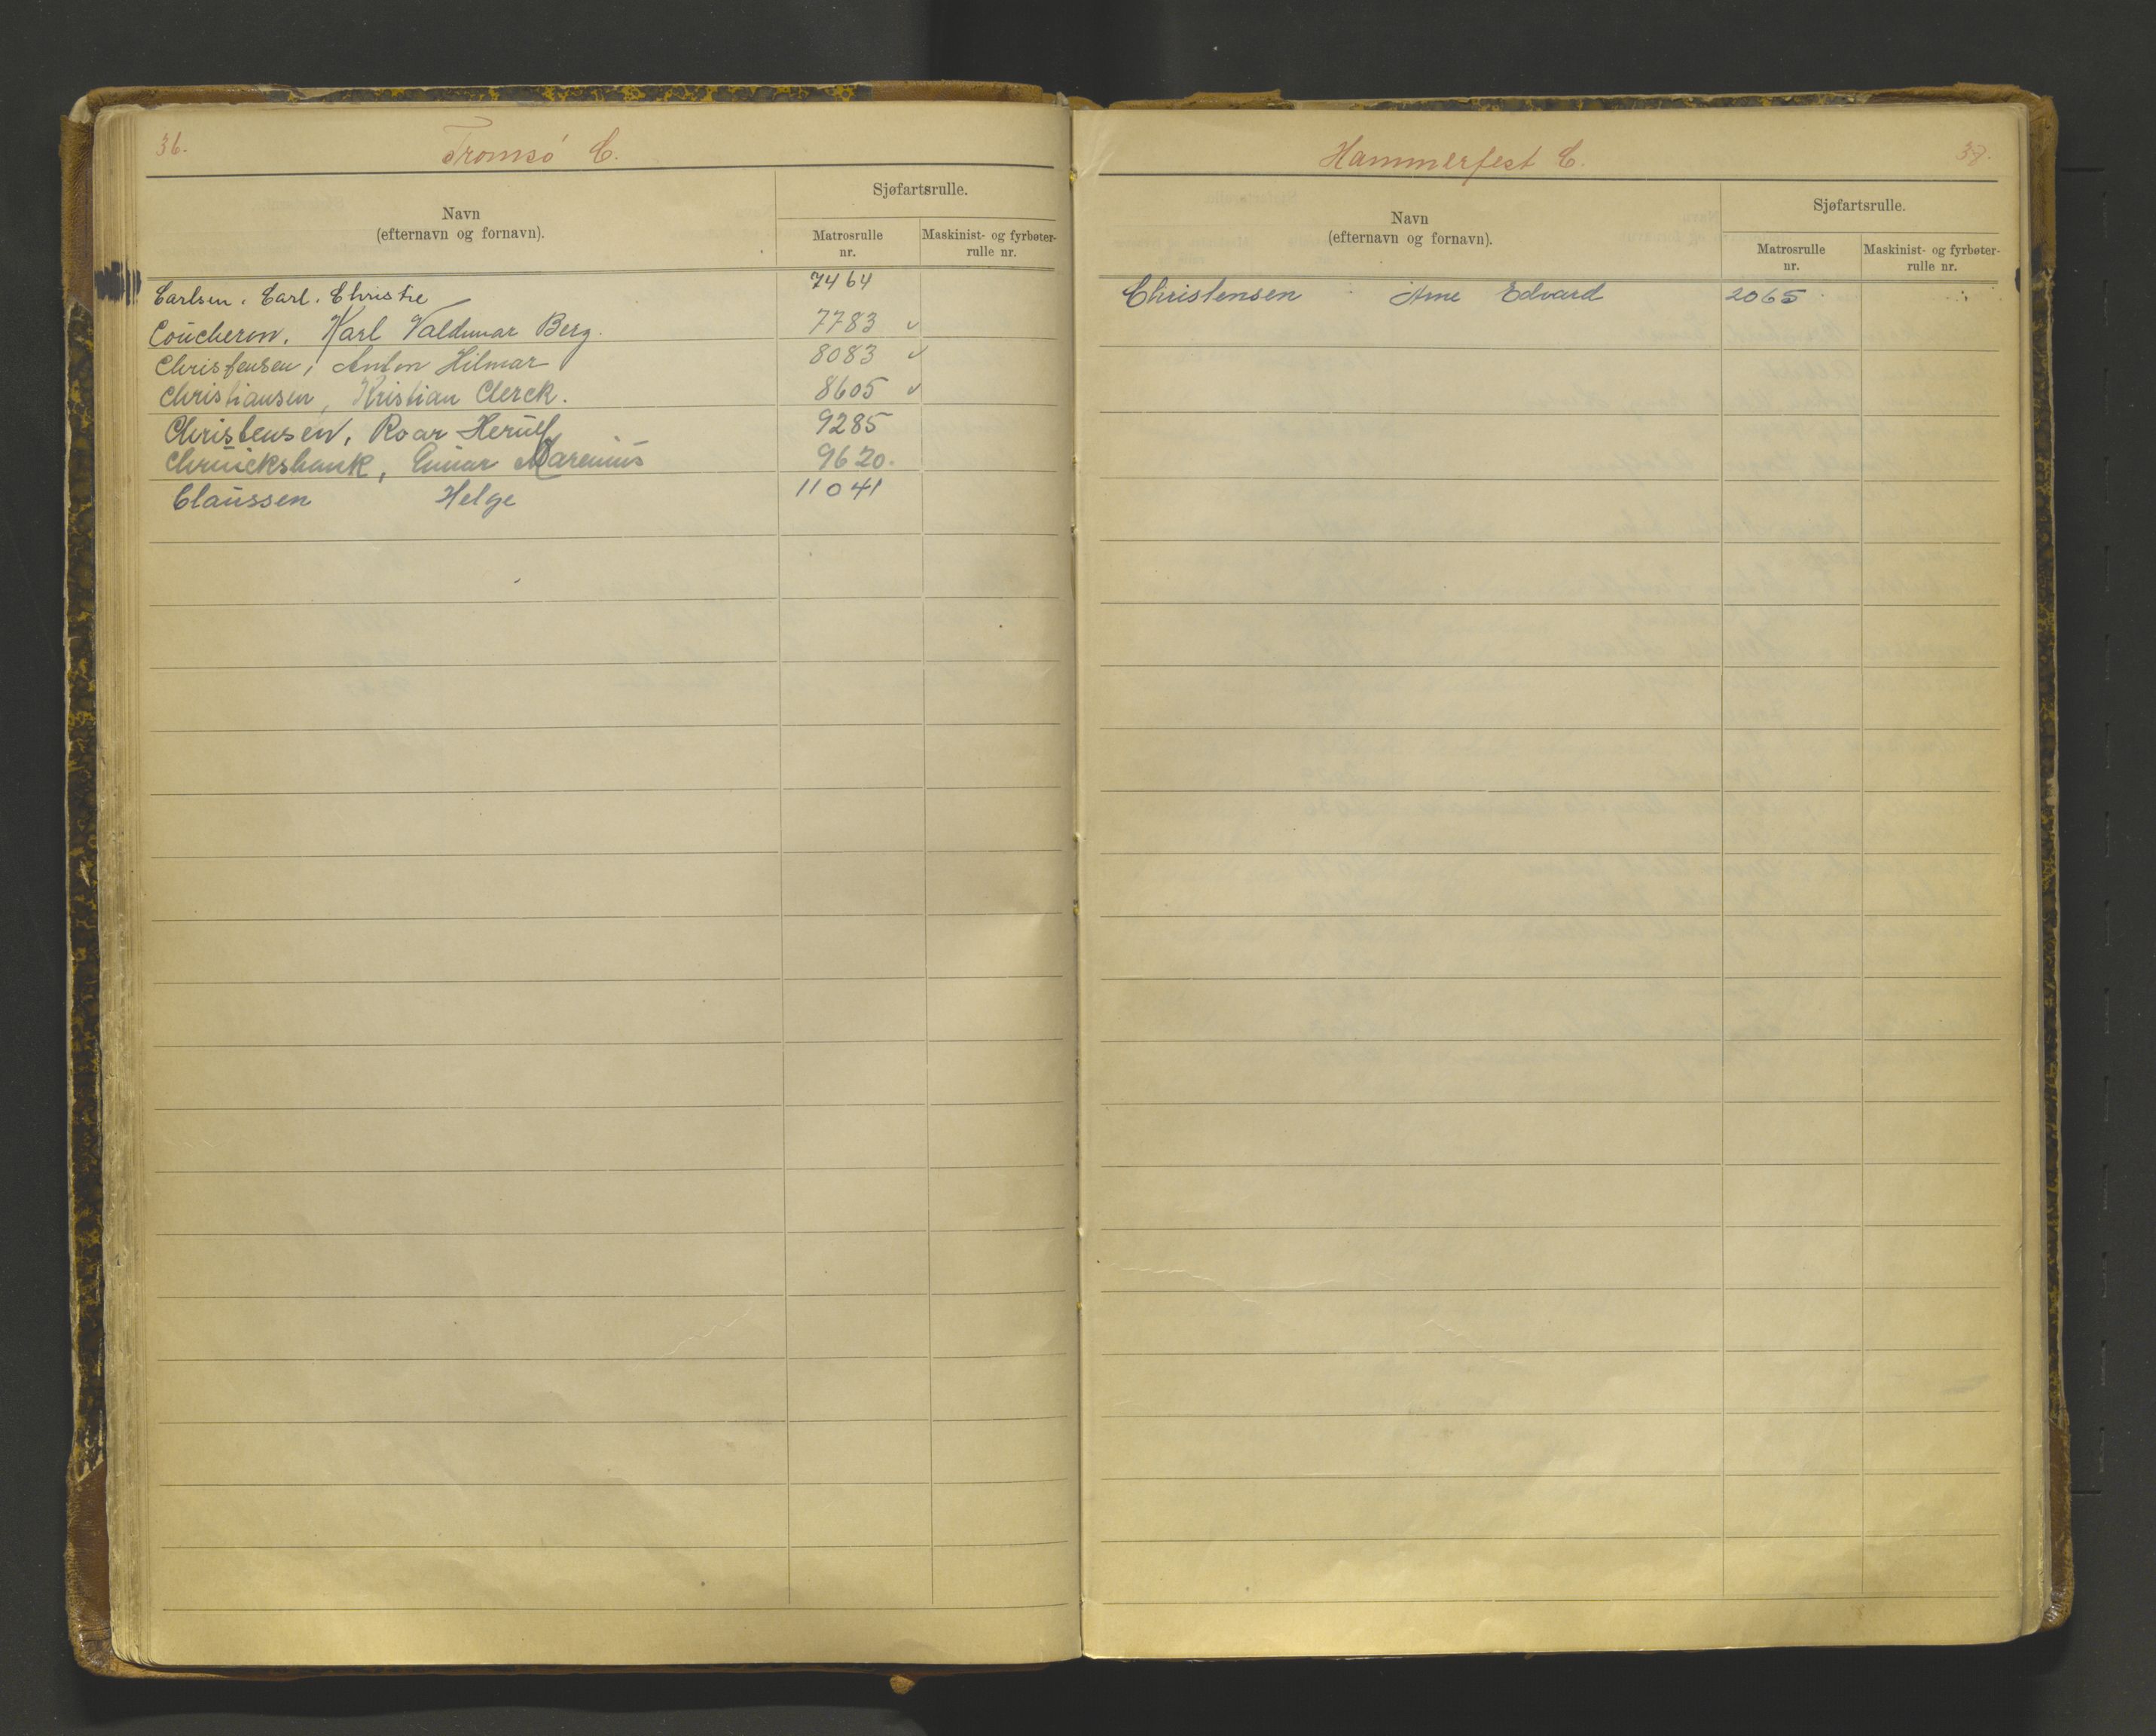 36.
Tromsö C.
Navn
(efternavn og fornavn).
Sjøfartsrulle.
Matrosrulle
nr.
Maskinist- og fyrbøter-
rulle nr.
Carlsen. Carl. Christie 7464
Coucheron. Karl Valdemar Berg. 7783 ✓
Christensen, Anton Hilmar 8083 ✓
Christiansen, Kristian Clerck. 8605 ✓
Christensen, Roar Herulf 9285
Chruickshank, Einar Marenius 9620.
Claussen Helge 11041
Hammerfest C.
37.
Navn
(efternavn og fornavn).
Sjøfartsrulle.
Matrosrulle
nr.
Maskinist- og fyrbøter-
rulle nr.
Christensen Arne Edvard 2065